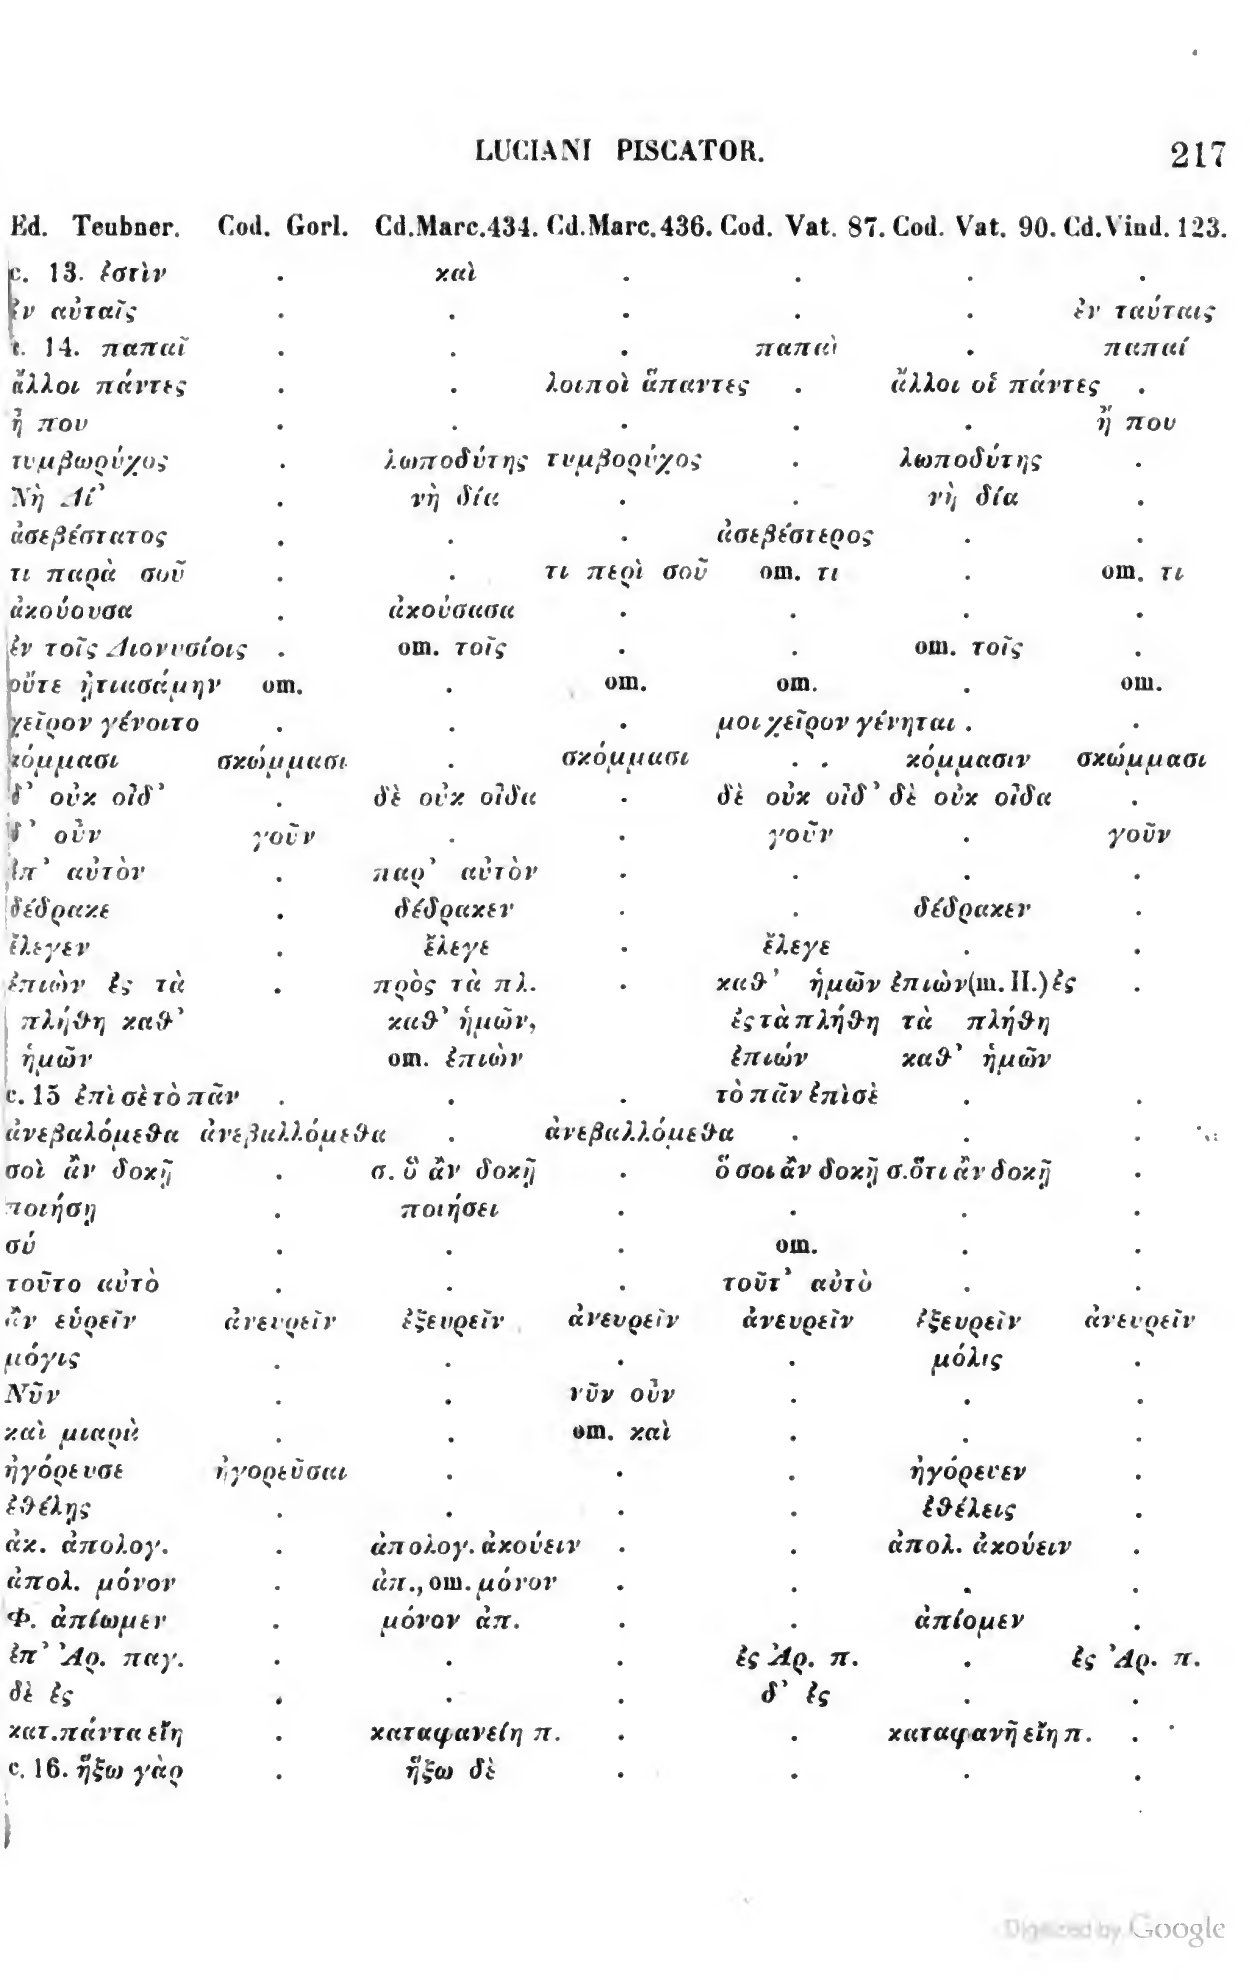 LUCIANI PISCATOR. 217
Ed. Teubner. Cod. Gorl. Cd.Marc.434. Cd.Marc.436. Cod. Vat. 87. Cod. Vat. 90. Cd.Vind. 123.
c. 13. ἐστὶν . καὶ . . . .
ἐν αὐταῖς . . . . . ἐν ταύταις
c. 14. παπαῖ . . . παπαὶ . παπαί
ἄλλοι πάντες . . λοιποὶ ἅπαντες . ἄλλοι οἱ πάντες .
ἦ που . . . . . ἤ που
τυμβωρύχος . λωποδύτης τυμβορύχος . λωποδύτης .
Νὴ Δί’ . νὴ δία . . νὴ δία .
ἀσεβέστατος . . . ἀσεβέστερος . .
τι παρὰ σοῦ . . τι περὶ σοῦ om. τι . om. τι
ἀκούουσα . ἀκούσασα . . . .
ἐν τοῖς Διονυσίοις . om. τοῖς . . om. τοῖς .
οὔτε ᾐτιασάμην om. . om. om. . om.
χεῖρον γένοιτο . . . μοι χεῖρον γένηται . .
κόμμασι σκώμμασι . σκόμμασι . . κόμμασιν σκώμμασι
δ’ οὐκ οἶδ’ . δὲ οὐκ οἶδα . δὲ οὐκ οἶδ’ δὲ οὐκ οἶδα .
δ’ οὖν γοῦν . . γοῦν . γοῦν
ἐπ’ αὐτὸν . παρ’ αὐτὸν . . . .
δέδρακε . δέδρακεν . . δέδρακεν .
ἔλεγεν . ἔλεγε . ἔλεγε . .
ἐπιὼν ἐς τὰ . πρὸς τὰ πλ. . καθ’ ἡμῶν ἐπιὼν(m. II.) ἐς .
πλήθη καθ’ καθ’ ἡμῶν, ἐς τὰ πλήθη τὰ πλήθη
ἡμῶν om. ἐπιὼν ἐπιών καθ’ ἡμῶν
c. 15 ἐπὶ σὲ τὸ πᾶν . . . τὸ πᾶν ἐπὶ σὲ . .
ἀνεβαλόμεθα ἀνεβαλλόμεθα . ἀνεβαλλόμεθα . . .
σοὶ ἂν δοκῇ . σ. ὃ ἂν δοκῇ . ὅ σοι ἂν δοκῇ σ. ὅτι ἂν δοκῇ .
ποιήσῃ . ποιήσει . . . .
σύ . . . om. . .
τοῦτο αὐτὸ . . . τοῦτ’ αὐτὸ . .
ἂν εὑρεῖν ἀνευρεῖν ἐξευρεῖν ἀνευρεῖν ἀνευρεῖν ἐξευρεῖν ἀνευρεῖν
μόγις . . . . μόλις .
Νῦν . . νῦν οὖν . . .
καὶ μιαρὰ . . om. καὶ . . .
ἠγόρευσε ἠγορεῦσαι . . . ἠγόρευεν .
ἐθέλῃς . . . . ἐθέλεις .
ἀκ. ἀπολογ. . ἀπολογ. ἀκούειν . . ἀπολ. ἀκούειν .
ἀπολ. μόνον . ἀπ., om. μόνον . . . .
Φ. ἀπίωμεν . μόνον ἀπ. . . ἀπίομεν .
ἐπ’ Ἀρ. παγ. . . . ἐς Ἀρ. π. . ἐς Ἀρ. π.
δὲ ἐς . . . δ’ ἐς . .
κατ. πάντα εἴη . καταφανείη π. . . καταφανῆ εἴη π. .
c. 16. ἥξω γὰρ . ἥξω δὲ . . . .
Digitized by Google